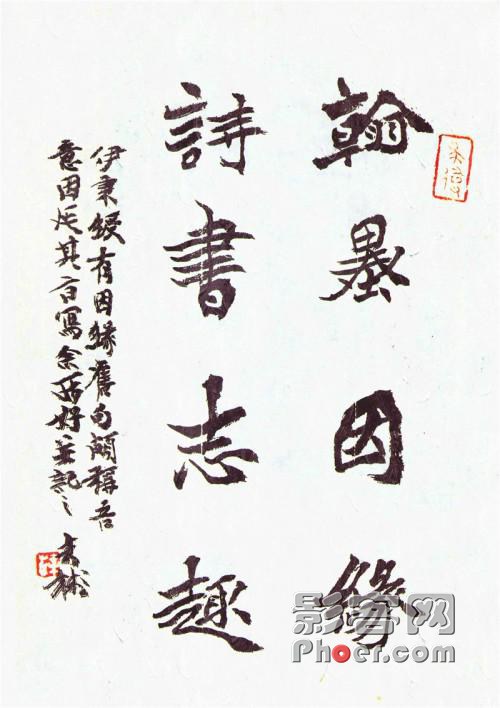 翰墨因緣
詩書志趣
伊秉綬有因緣舊句頗稱吾
意因足其言寫余所好並記之
影客网
Phoer.com